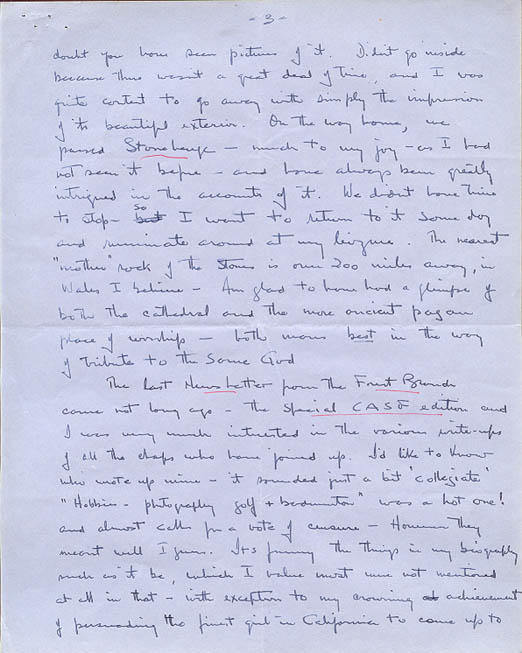 - 3 -
doubt you have seen pictures of it. Didn't go inside
because there wasn't a great deal of time, and I was
quite content to go away with simply the impression
of its beautiful exterior. On the way home, we
passed Stonehenge – much to my joy – as I had
not seen it before – and have always been greatly
intrigued in the accounts of it. We didn't have time
to stop – so I want to return to it some day
and ruminate around at my leizure. The nearest
"mother" rock of the stones is over 200 miles away, in
Wales I believe – Am glad to have had a glimpse of
both the cathedral and the more ancient pagan
place of worship – both mans best in the way
of tribute to the Same God
The last News Letter from the Front Brands
came not long ago – the special CASF edition and
I was very much interested in the various write-ups
of all the chaps who have joined up. I'd like to know
who wrote up mine – it sounded just a bit 'collegiate'
"Hobbies – photography golf + badminton" was a hot one!
and almost calls for a vote of censure – However they
meant well I guess. It's funny the things in my biography
such as it be, which I value most were not mentioned
at all in that – with exception to my crowning achievement
of persuading the finest girl in California to come up to